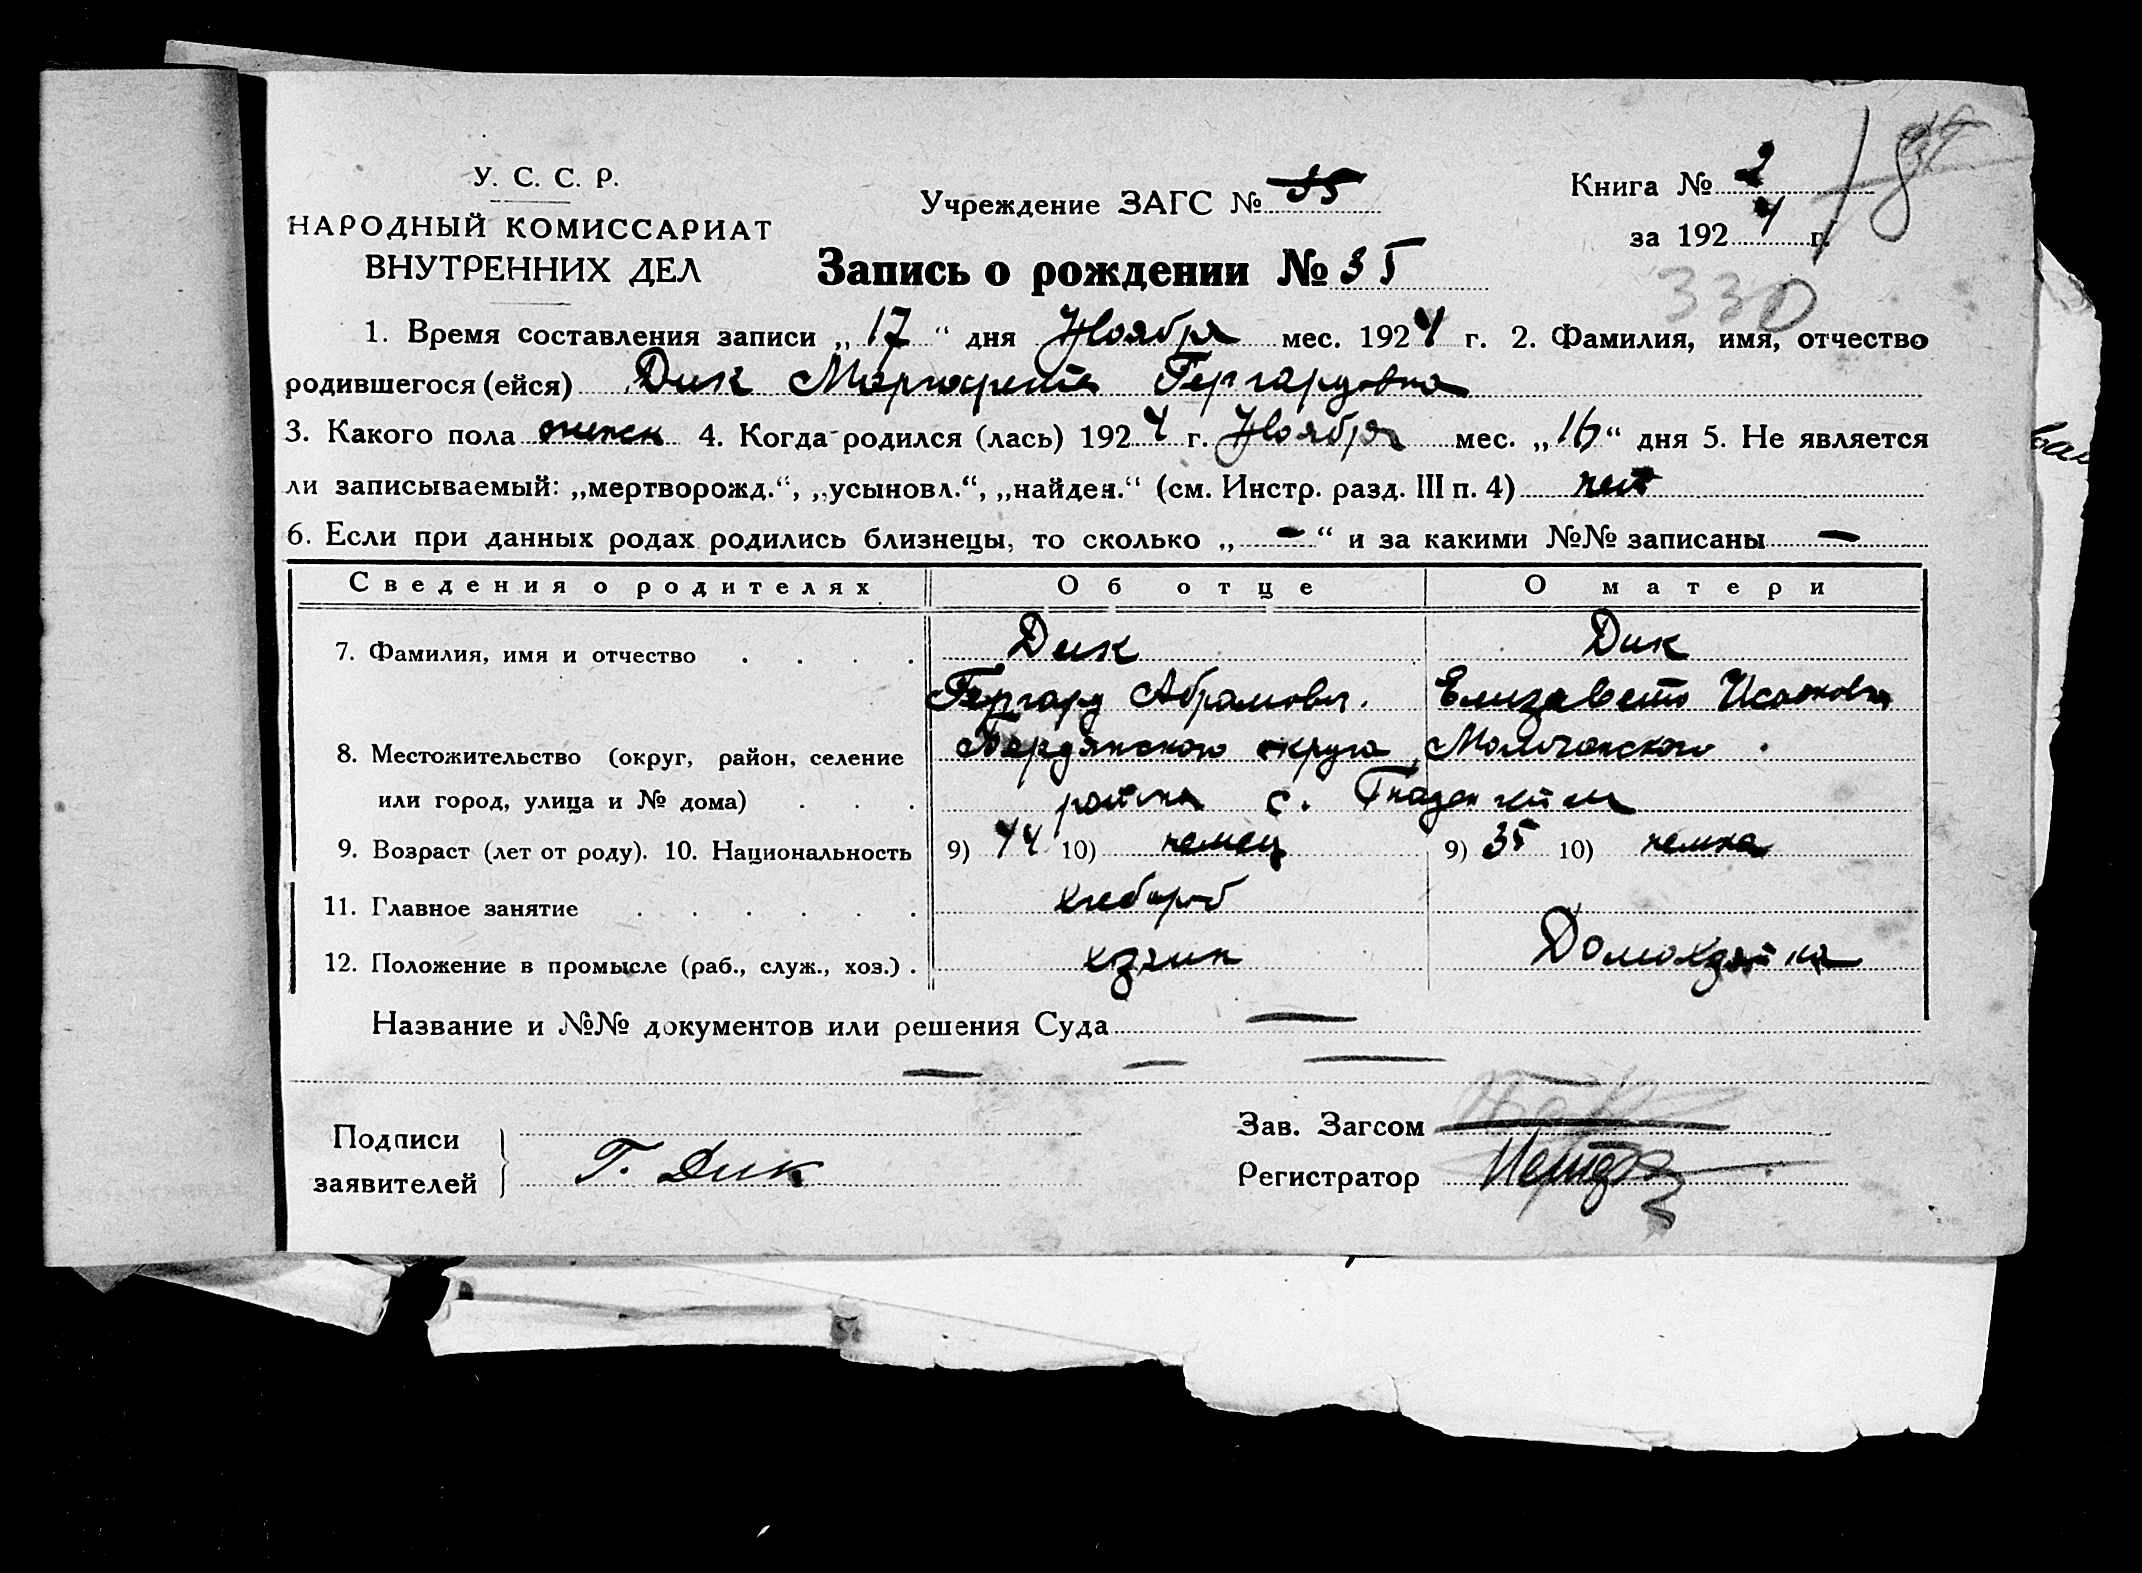 У. С. С. Р.
НАРОДНЫЙ КОМИССАРИАТ
ВНУТРЕННИХ ДЕЛ
Учреждение ЗАГС № 35
Книга № 2
за 1924 г.
330
Запись о рождении № 35
1. Время составления записи „17“ дня Ноября мес. 1924 г. 2. Фамилия, имя, отчество
родившегося (ейся) Дик Маргарета Гергардовна
3. Какого пола женск 4. Когда родился (лась) 1924 г. Ноября мес. „16“ дня 5. Не является
ли записываемый: „мертворожд.“, „усыновл.“, „найден.“ (см. Инстр. разд. III п. 4) нет
6. Если при данных родах родились близнецы, то сколько „-“ и за какими №№ записаны -
Сведения о родителях Об отце О матери
7. Фамилия, имя и отчество . . . . Дик Дик
Гергард Абрамович. Елизавета Исааковна
8. Местожительство (округ, район, селение Бердянского округа Молочанского
или город, улица и № дома) . . . района с. Гнаденгейм
9. Возраст (лет от роду). 10. Национальность 9) 44 10) немец 9) 35 10) немка
11. Главное занятие . . . . . . хлебороб
12. Положение в промысле (раб., служ., хоз.) . хзяин Домохзяйка
Название и №№ документов или решения Суда —
— — —
Подписи
заявителей
Г. Дик
Зав. Загсом
Регистратор